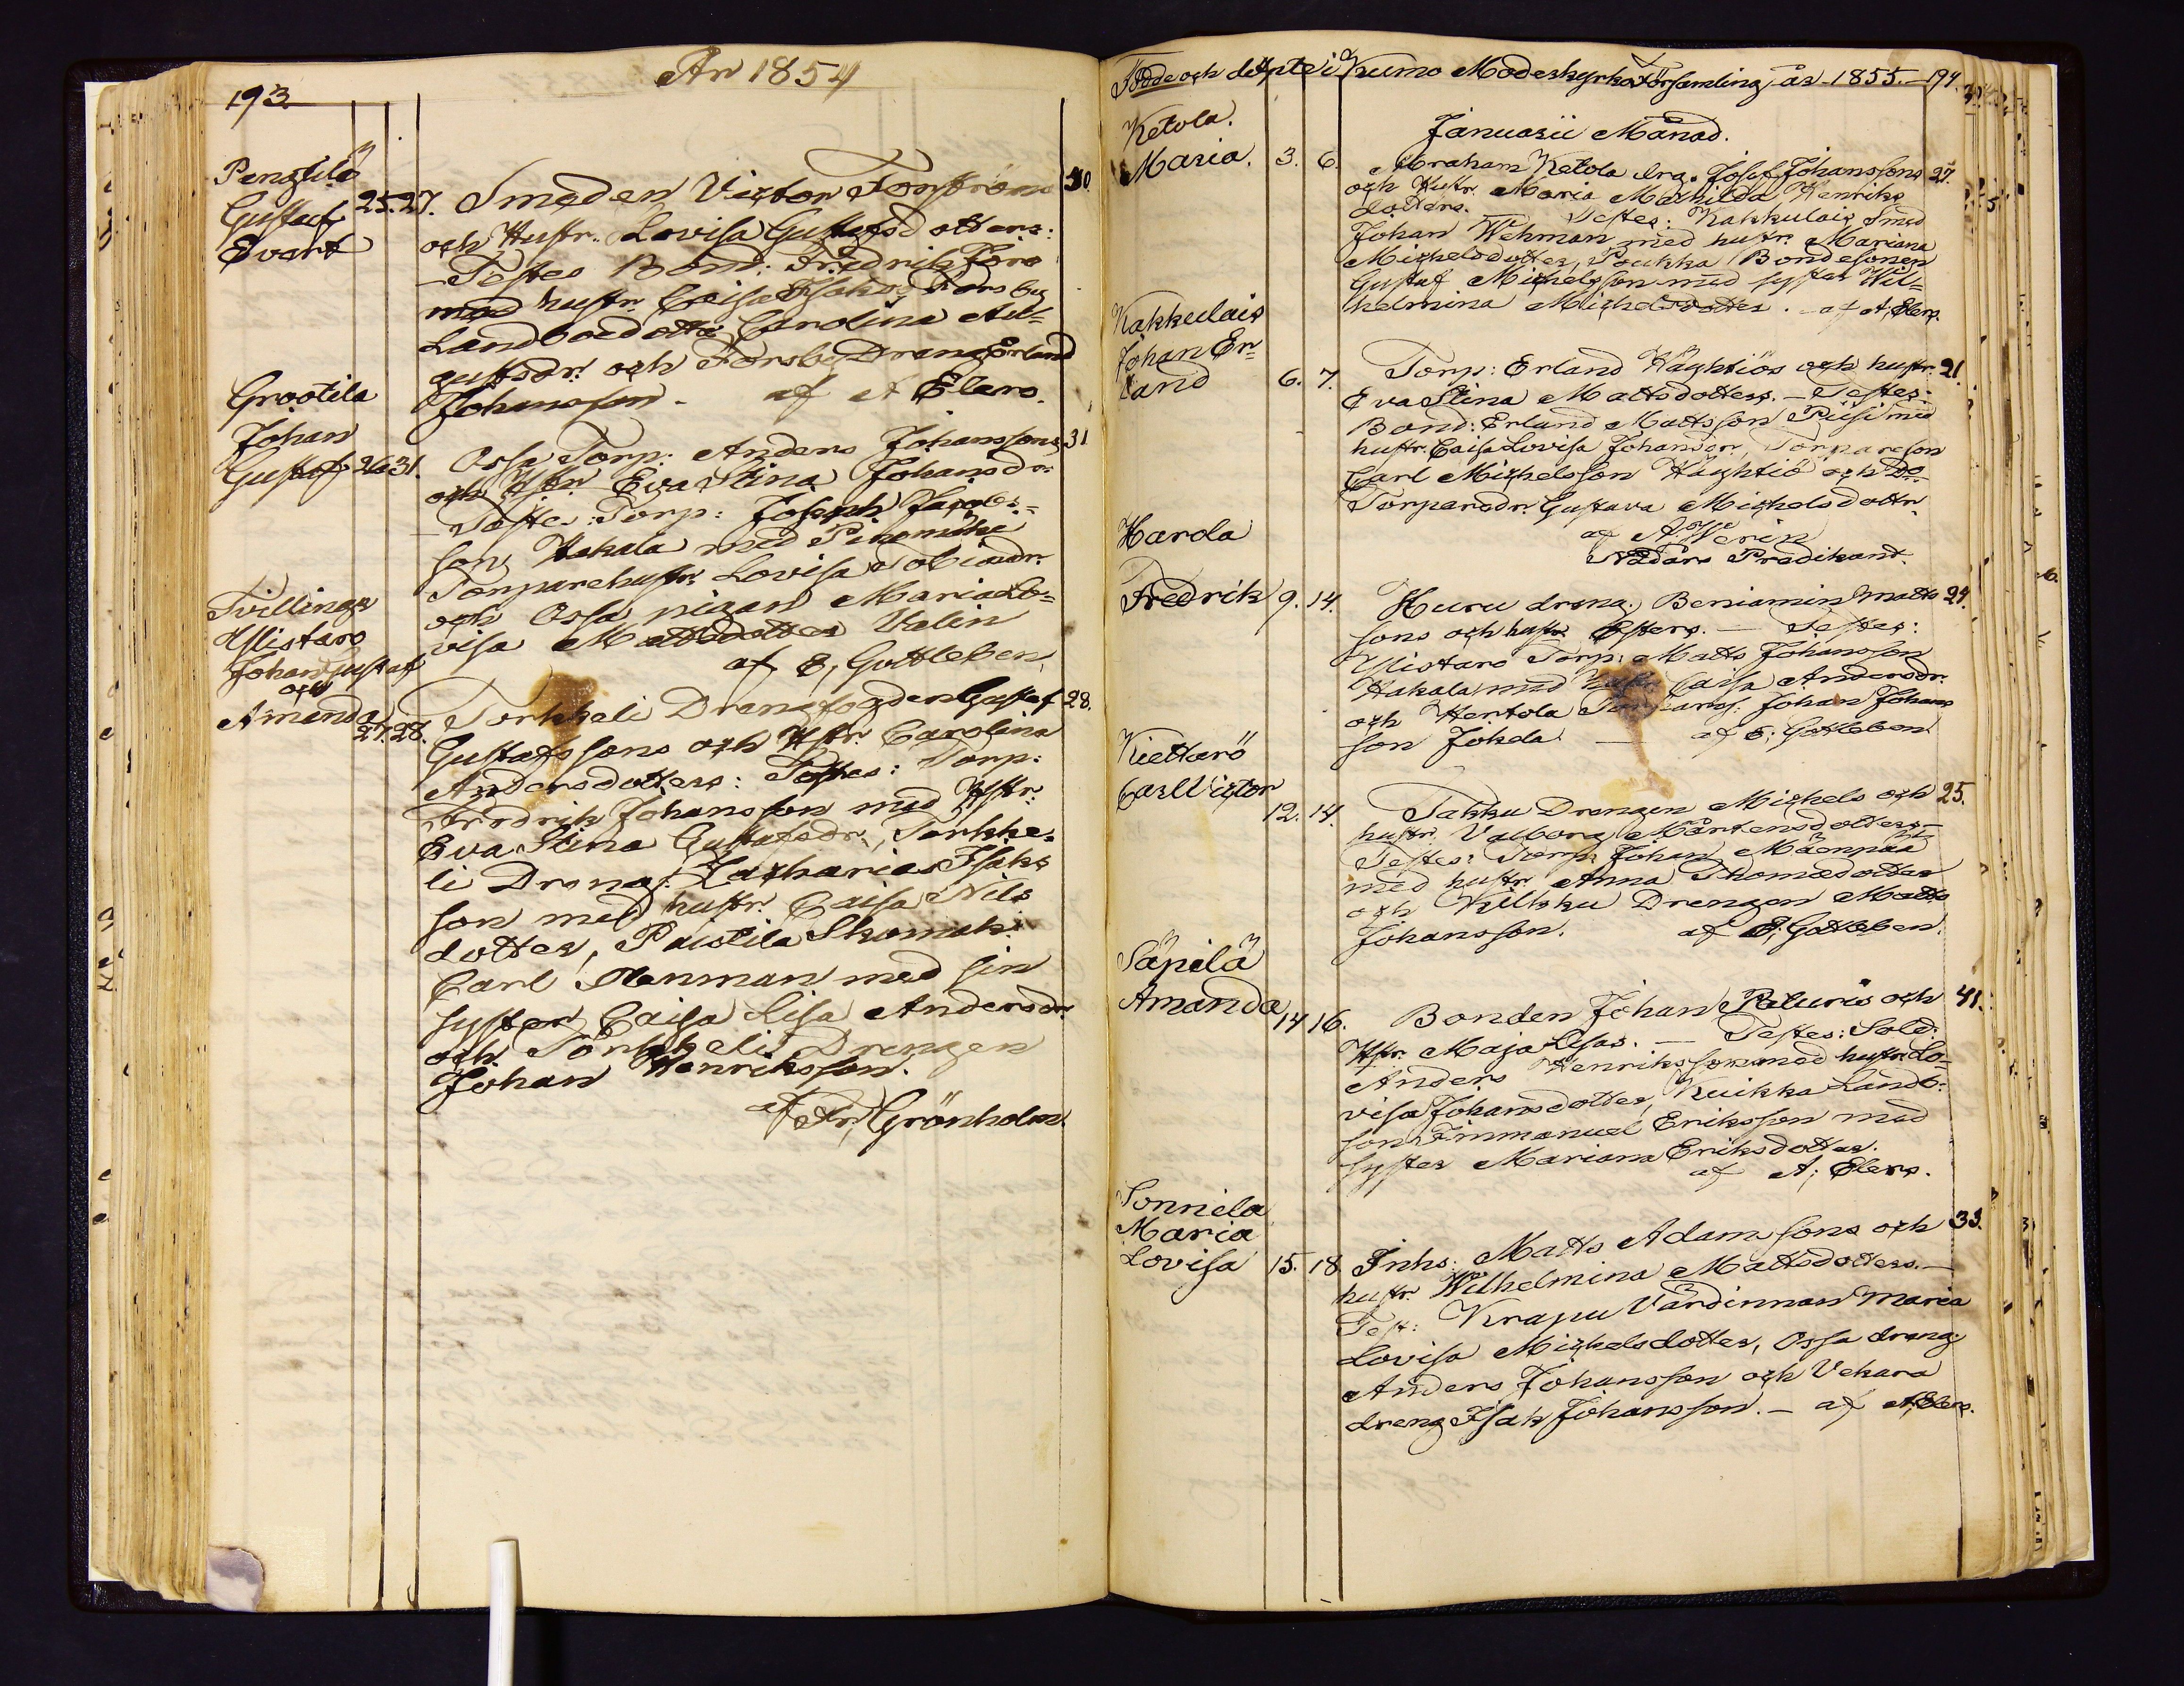 193.
År 1854
Penzlilä
Gustaf 25. 27.
Evart
Smeden Victor Forsströms 40.
och Hustr. Lovisa Gustafsdotters:
Testes Bond: Fredrik Förs
med hustr. Caisa Isaksd. Forsby
Landboedotter Carolina Au=
gustsdr. och Forsby Dräng Erland
Johansson. af A Elers.
Grootila
Johan
Gustaf 26 31.
Ossa Torp: Anders Johanssons 31
och Hstr Eva Stina Johansdr.
Testes: Torp: Joseph Jacobs=
son Hakala med
Torparehustr. Lovisa Tobiaedr.
och Ossa pigan Maria Lo=
visa Mattsdotter Valin
af E, Gottleben
Tvillingar
Ylistaro
Johan Gustaf
och
Amanda
27. 28.
Torkkeli Drengfogden Gustaf 28.
Gustafssons och Hstr. Carolina
Andersdotters: Testes: Torp:
Fredrik Johansson med Hstr:
Eva Stina Gustafsdr., Torkke=
li Dreng: Zacharias Isaks
son med hustr. Caisa Nils
dotter, Paistila Skomak:
Carl Stenman med sin
syster Caisa Lisa Andersdr.
och Törkkeli Drengen
Johan Henriksson.
af Fr, Grönholm.
Födde och döpte i Kumo Moderkyrko Församling år 1855. 194.
Januarii Månad.
Ketola.
Maria. 3. 6.
Abraham Ketola drg. Josef Johanssons 27.
och Hustr. Maria Mathilda Henriks
dotters. Testes: Kakkulais Smed
Johan Wehman med hustr. Mariana
Michelsdotter, Poukka Bondesonen
Gustaf Michelsson med syster Wil=
helmina Michelsdotter. af A, Elers.
Kakkulais
Johan Er=
land 6. 7.
Torp: Erland Häyhtiös och hustr. 21.
Eva Stina Mattsdotters. Testes:
Bond: Erland Mattsson Piisi med
hustr. Caisa Lovisa Johansdr., Torpareson
Carl Michelsson Häyhtiö och do
Torparedr. Gustava Michelsdottr.
af A. Werin
Nådårs Predikant.
Harola
Fredrik 9. 14.
Huru dreng. Beniamin Matts 24.
sons och hustr. Esters. Testes:
Ylistaro Torp: Matts Johansson
Hakala med hustr. Caisa Andersdr.
och Hertola Johan Johans
son Jokela. af E; Gottleben.
Kiettarö
Carl Victor
12. 14.
Takku Drengen Michels och 25.
hustr. Valborg Mårtensdotters
Testes: Torp: Johan Mäenpää
med hustr. Anna Thomædotter
och Kilkku Drengen Matts
Johansson. af E, Gottleben.
Säpilä
Amanda 14 16.
Bonden Johan Raturis och 41.
Hstr. Maja Lisas. Testes: Sold:
Anders Henriksson med hustr. Lo=
visa Johansdotter, Kuikka Landb:
son Immanuel Eriksson med
syster Mariana Eriksdotter.
af A; Elers.
Sonnila
Maria
Lovisa 15. 18.
Inhs: Matts Adamssons och 33.
hustr. Wilhelmina Mattsdotters.
Test: Krapu Värdinnan Maria
Lovisa Michelsdotter, Ossa dreng
Anders Johansson och Vekara
dreng Isak Johansson. af A, Elers.